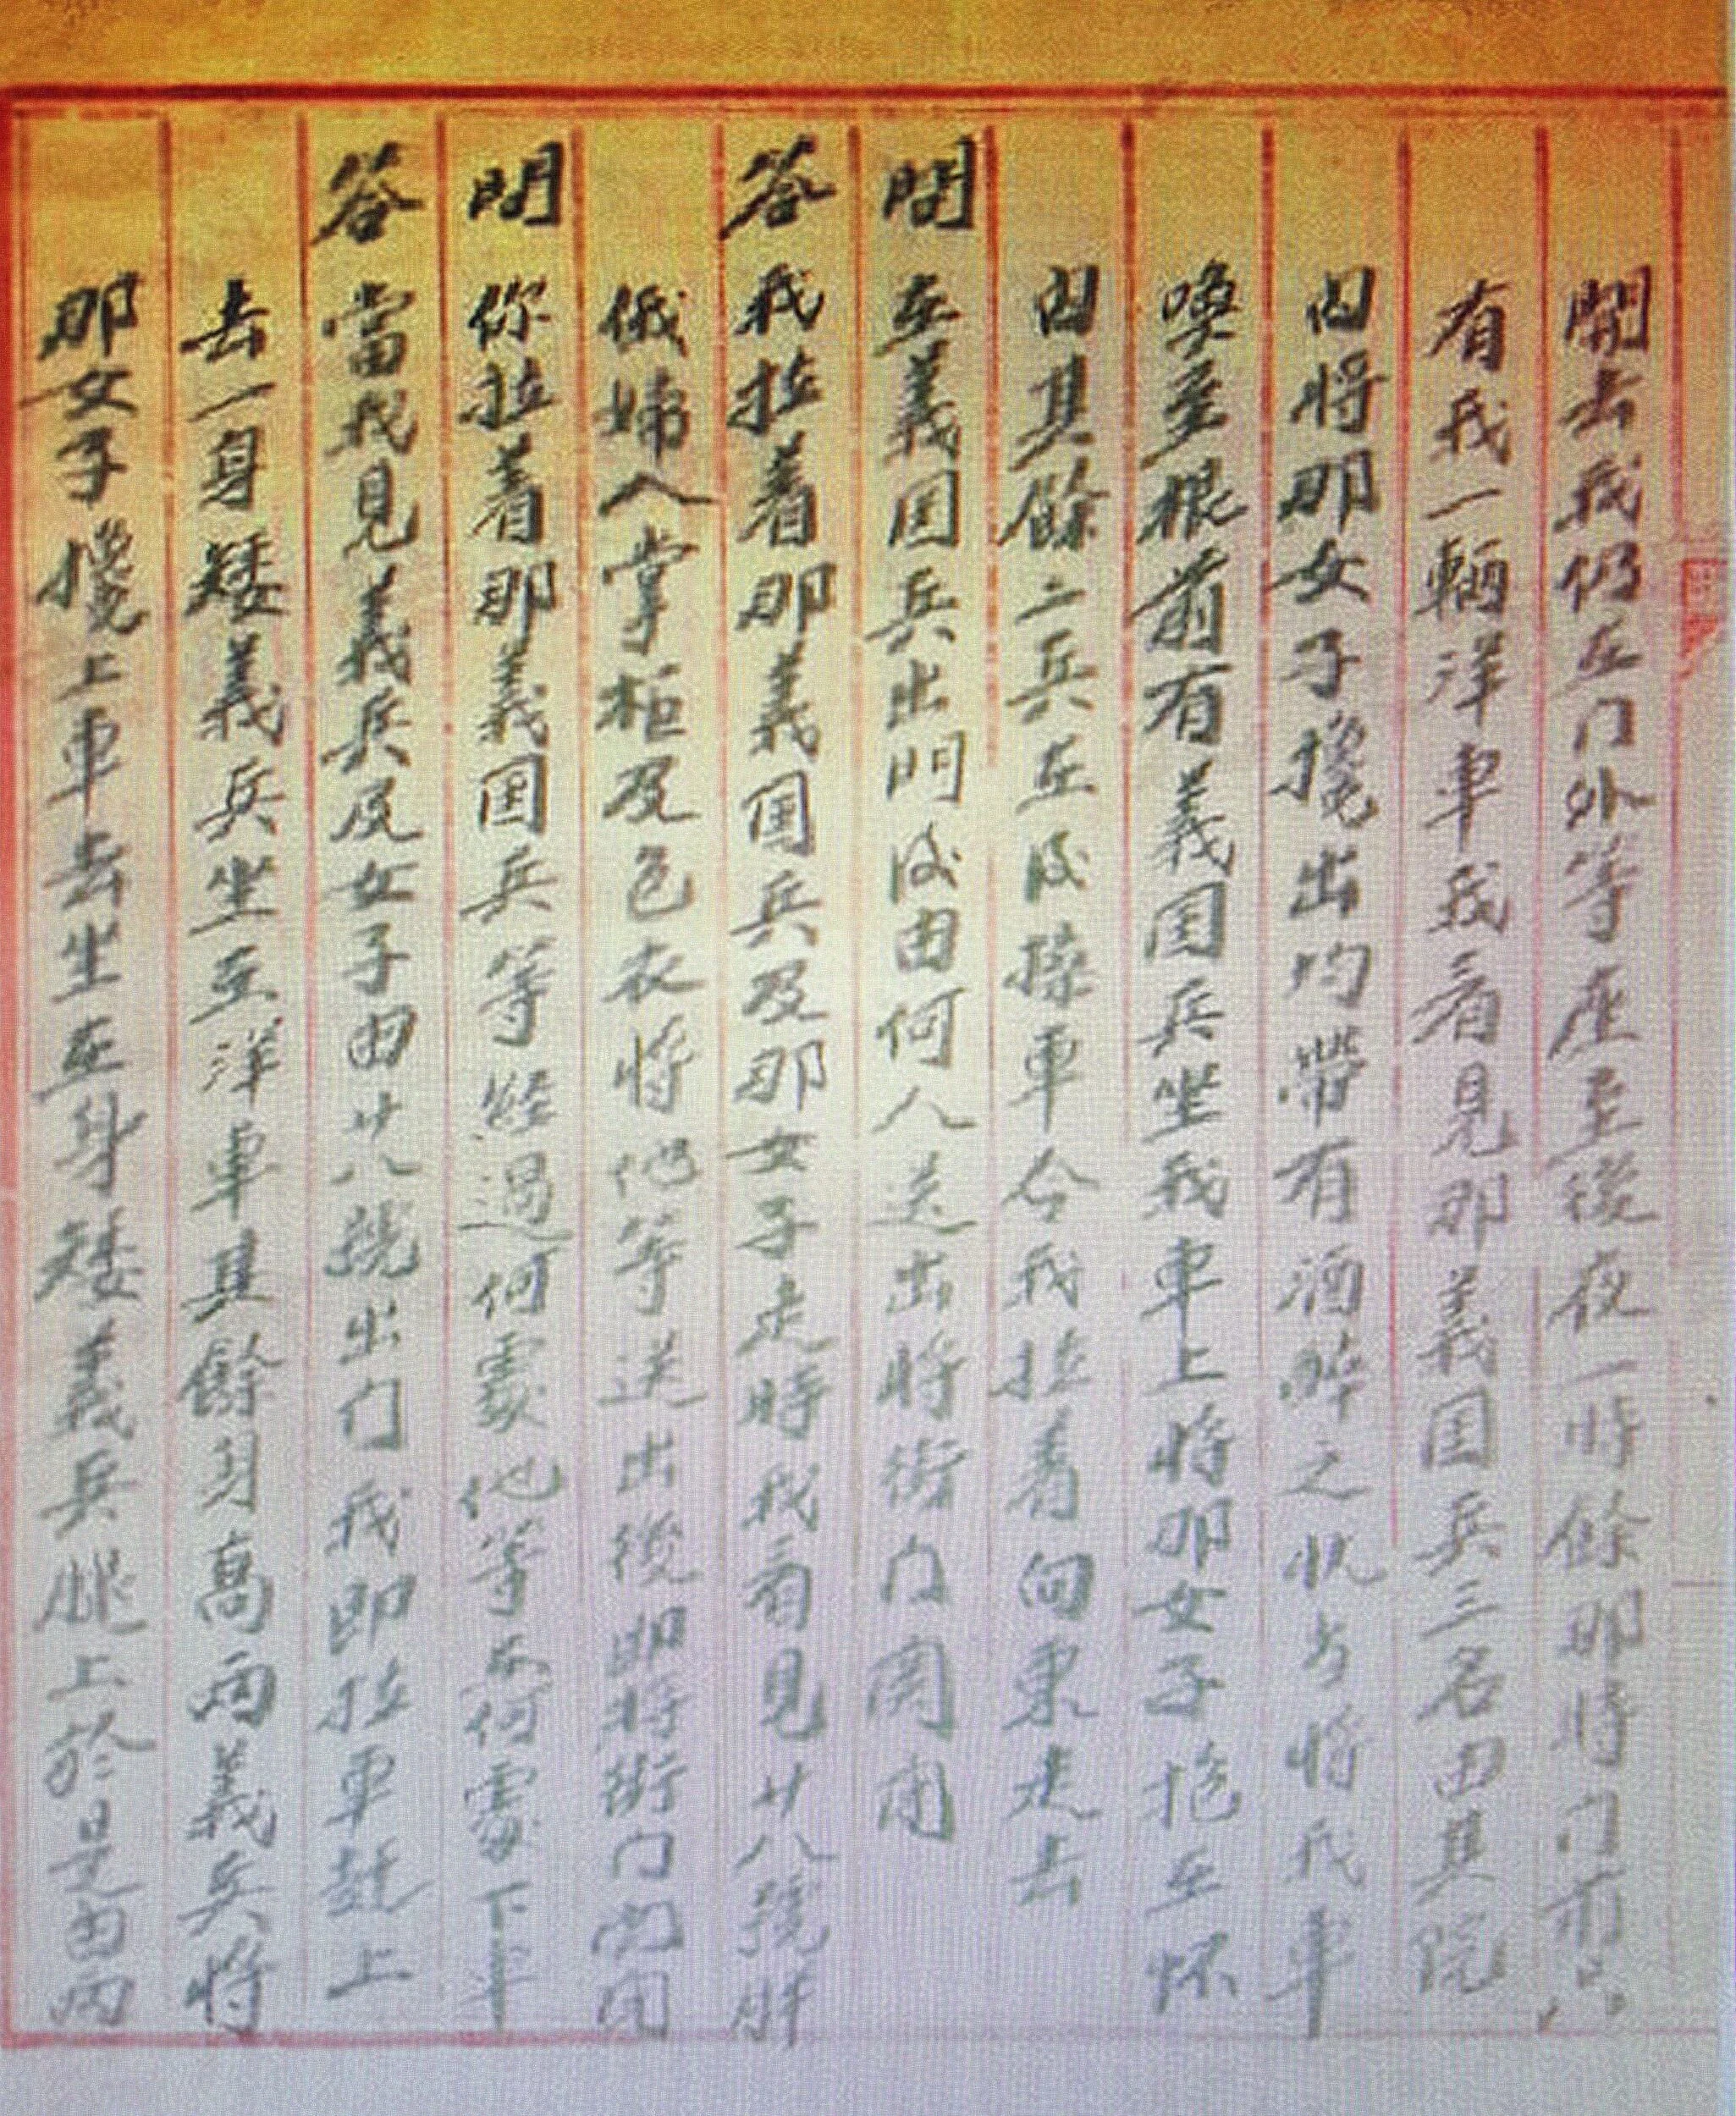 開去我仍在门外等座至後夜一時餘那時门前只
有我一輛洋車我看見那義国兵三名由其院
内將那女子攙出均帶有酒醉之狀方將我車
喚至根前有義国兵坐我車上將那女子抱在怀
内其餘二兵在後搡車令我拉着向東走去
問 在義国兵出門後由何人送出將街门関闭
答 我拉着那義国兵及那女子走時我看見廿八號胖
俄婦人掌柜及色衣將他等送出後即将街门関闭
問 你拉着那義国兵等經過何處他等在何處下车
答 當我見義兵及女子由廿八號出门我即拉車赶上
去一身矮義兵坐在洋車其餘身高兩義兵將
那女子攙上車去坐在身矮義兵腿上於是由两